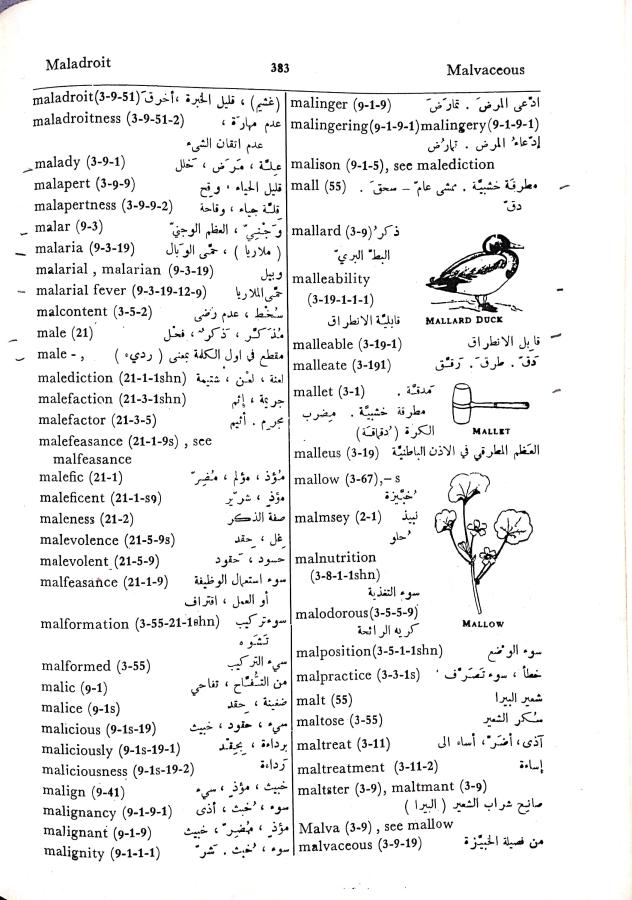 Maladroit
383
Malvaceous
maladroit(3-9-51) أخرق، قليل الخبرة ، (غشيم)
maladroitness (3-9-51-2) عدم مهارة ،
عدم اتقان الشيء
malady (3-9-1) علة ، مرض ، خلل
malapert (3-9-9) قليل الحياء ، وقح
malapertness (3-9-9-2) قلة حياء ، وقاحة
malar (9-3) وجنيّ ، العظم الوجنيّ
malaria (9-3-19) (ملاريا) ، حمّى الوبال
malarial , malarian (9-3-19) وبيل
malarial fever (9-3-19-12-9) حمّى الملاريا
malcontent (3-5-2) سخط ، عدم رضى
male (21) مذكّر ، ذكر ، فحل
male - , مقطع في اول الكلمة بمعنى ( رديء )
malediction (21-1-1shn) لعنة ، لعن ، شتيمة
malefaction (21-3-1shn) جريمة ، إثم
malefactor (21-3-5) مجرم . أثيم
malefeasance (21-1-9s) , see
malfeasance
malefic (21-1) مؤذ ، مؤلم ، مضرّ
maleficent (21-1-s9) مؤذ ، شرّير
maleness (21-2) صفة الذكر
malevolence (21-5-9s) غل ، حقد
malevolent (21-5-9) حسود ، حقود
malfeasance (21-1-9) سوء استعمال الوظيفة
أو العمل ، اقتراف
malformation (3-55-21-1shn) سوء تركيب
تشوه
malformed (3-55) سيء التركيب
malic (9-1) من التفّاح ، تفاحي
malice (9-1s) ضغينة ، حقد
malicious (9-1s-19) سيء ، حقود ، خبيث
maliciously (9-1s-19-1) برداءة ، بحقد
maliciousness (9-1s-19-2) رداءة
malign (9-41) خبيث ، مؤذ ، سيء
malignancy (9-1-9-1) سوء ، خبث ، أذى
malignant (9-1-9) مؤذ ، مضرّ ، خبيث
malignity (9-1-1-1) سوء ، خبث . شرّ
malinger (9-1-9) ادّعى المرض . تمارض
malingering(9-1-9-1)malingery(9-1-9-1)
إدعاء المرض . تمارض
malison (9-1-5), see malediction
mall (55) مطرقة خشبيّة . ممشى عامّ – سحق .
دقّ
mallard (3-9) ذكر
البط البري
malleability
(3-19-1-1-1)
قابليّة الانطراق
MALLARD DUCK
malleable (3-19-1) قابل الانطراق
malleate (3-191) دقّ . طرق . رقّق
mallet (3-1) مدقّة .
مطرقة خشبيّة . مضرب
الكرة ( دقماقة )
MALLET
malleus (3-19) العظم المطرقي في الاذن الباطنيّة
mallow (3-67),-s
خبّيزة
malmsey (2-1) نبيذ
حلو
malnutrition
(3-8-1-1shn)
سوء التغذية
malodorous(3-5-5-9)
كريه الرائحة
MALLOW
malposition(3-5-1-1shn) سوء الوضع
malpractice (3-3-1s) خطأ ، سوء تصرّف
malt (55) شعير البيرا
maltose (3-55) سكر الشعير
maltreat (3-11) آذى، أضرّ، أساء الى
maltreatment (3-11-2) إساءة
maltster (3-9), maltmant (3-9)
صانع شراب الشعير ( البيرا )
Malva (3-9) , see mallow
malvaceous (3-9-19) من فصيلة الخبيّزة